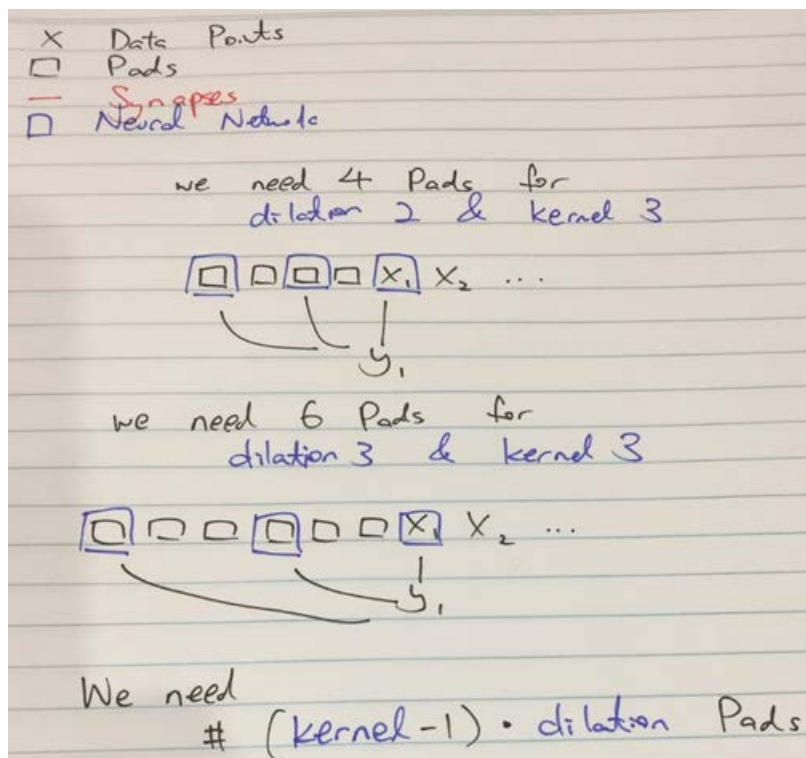 x Data Points
□ Pads
— Synapses
□ Neural Network
we need 4 Pads for
dilation 2 & kernel 3
□ □ □ □ x₁ x₂ ...
y₁
we need 6 Pads for
dilation 3 & kernel 3
□ □ □ □ □ □ x₁ x₂ ...
y₁
We need
# (kernel-1) · dilation Pads